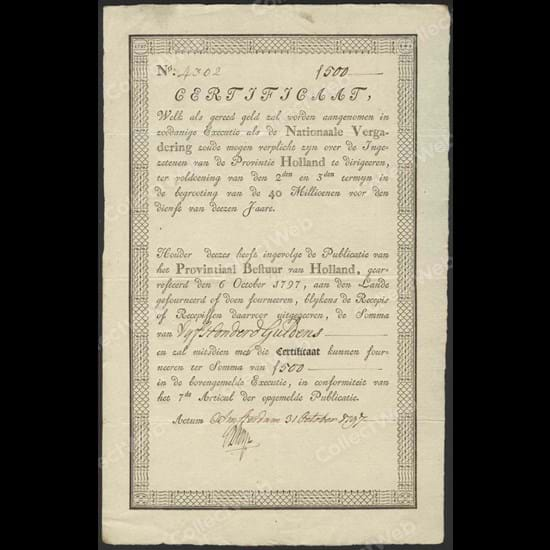 No. 4302 1500
CERTIFICAAT,
Welk als gereed geld zal worden aangenomen in
zoodanige Executie als de Nationaale Verga-
dering zoude mogen verplicht zyn over de Inge-
zetenen van de Provintie Holland te dirigeeren,
ter voldoening van den 2den en 3den termyn in
de begrooting van de 40 Millioenen voor den
dienst van deezen Jaare.
Houder deezes heeft ingevolge de Publicatie van
het Provintiaal Bestuur van Holland, gear-
resteerd den 6 October 1797, aan den Lande
gefourneerd of doen fourneeren, blykens de Recepis
of Recepissen daarvoor uitgegeeven, de Somma
van Vyf Honderd Guldens
en zal mitsdien met dit Certificaat kunnen four-
neeren ter Somma van 1500
in de bovengemelde Executie, in conformiteit van
het 7de Articul der opgemelde Publicatie.
Actum Amsterdam 31 October 1797
CollectWeb